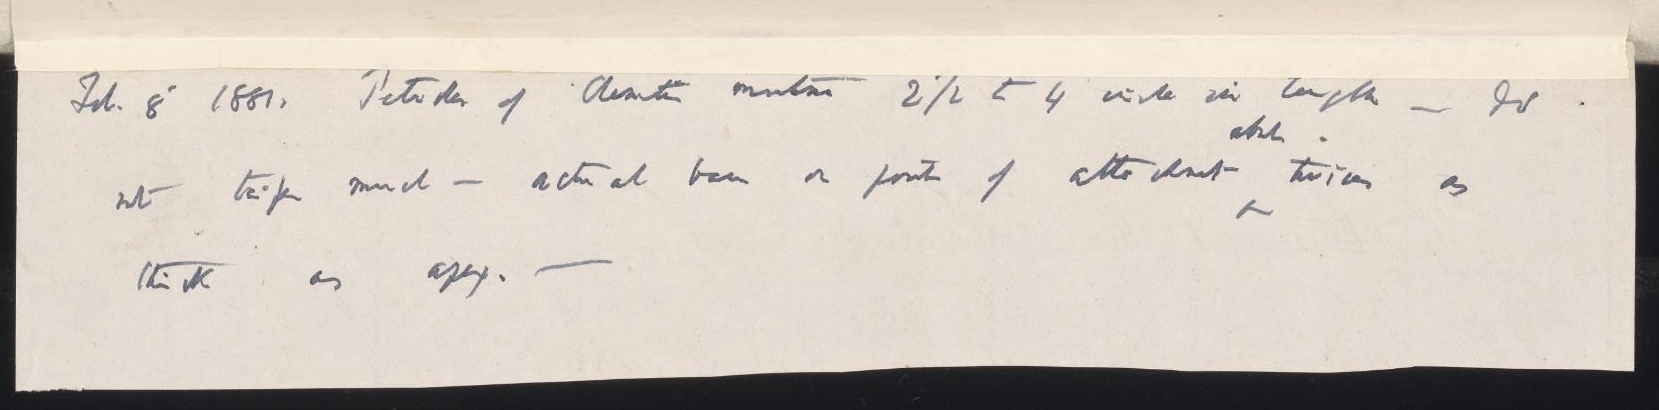 Feb. 8 1881. Petioles of Clematis montana 2 1/2 to 4 inches in length — do
not taper much — actual base or point of attachment about twice as
thick as apex. —